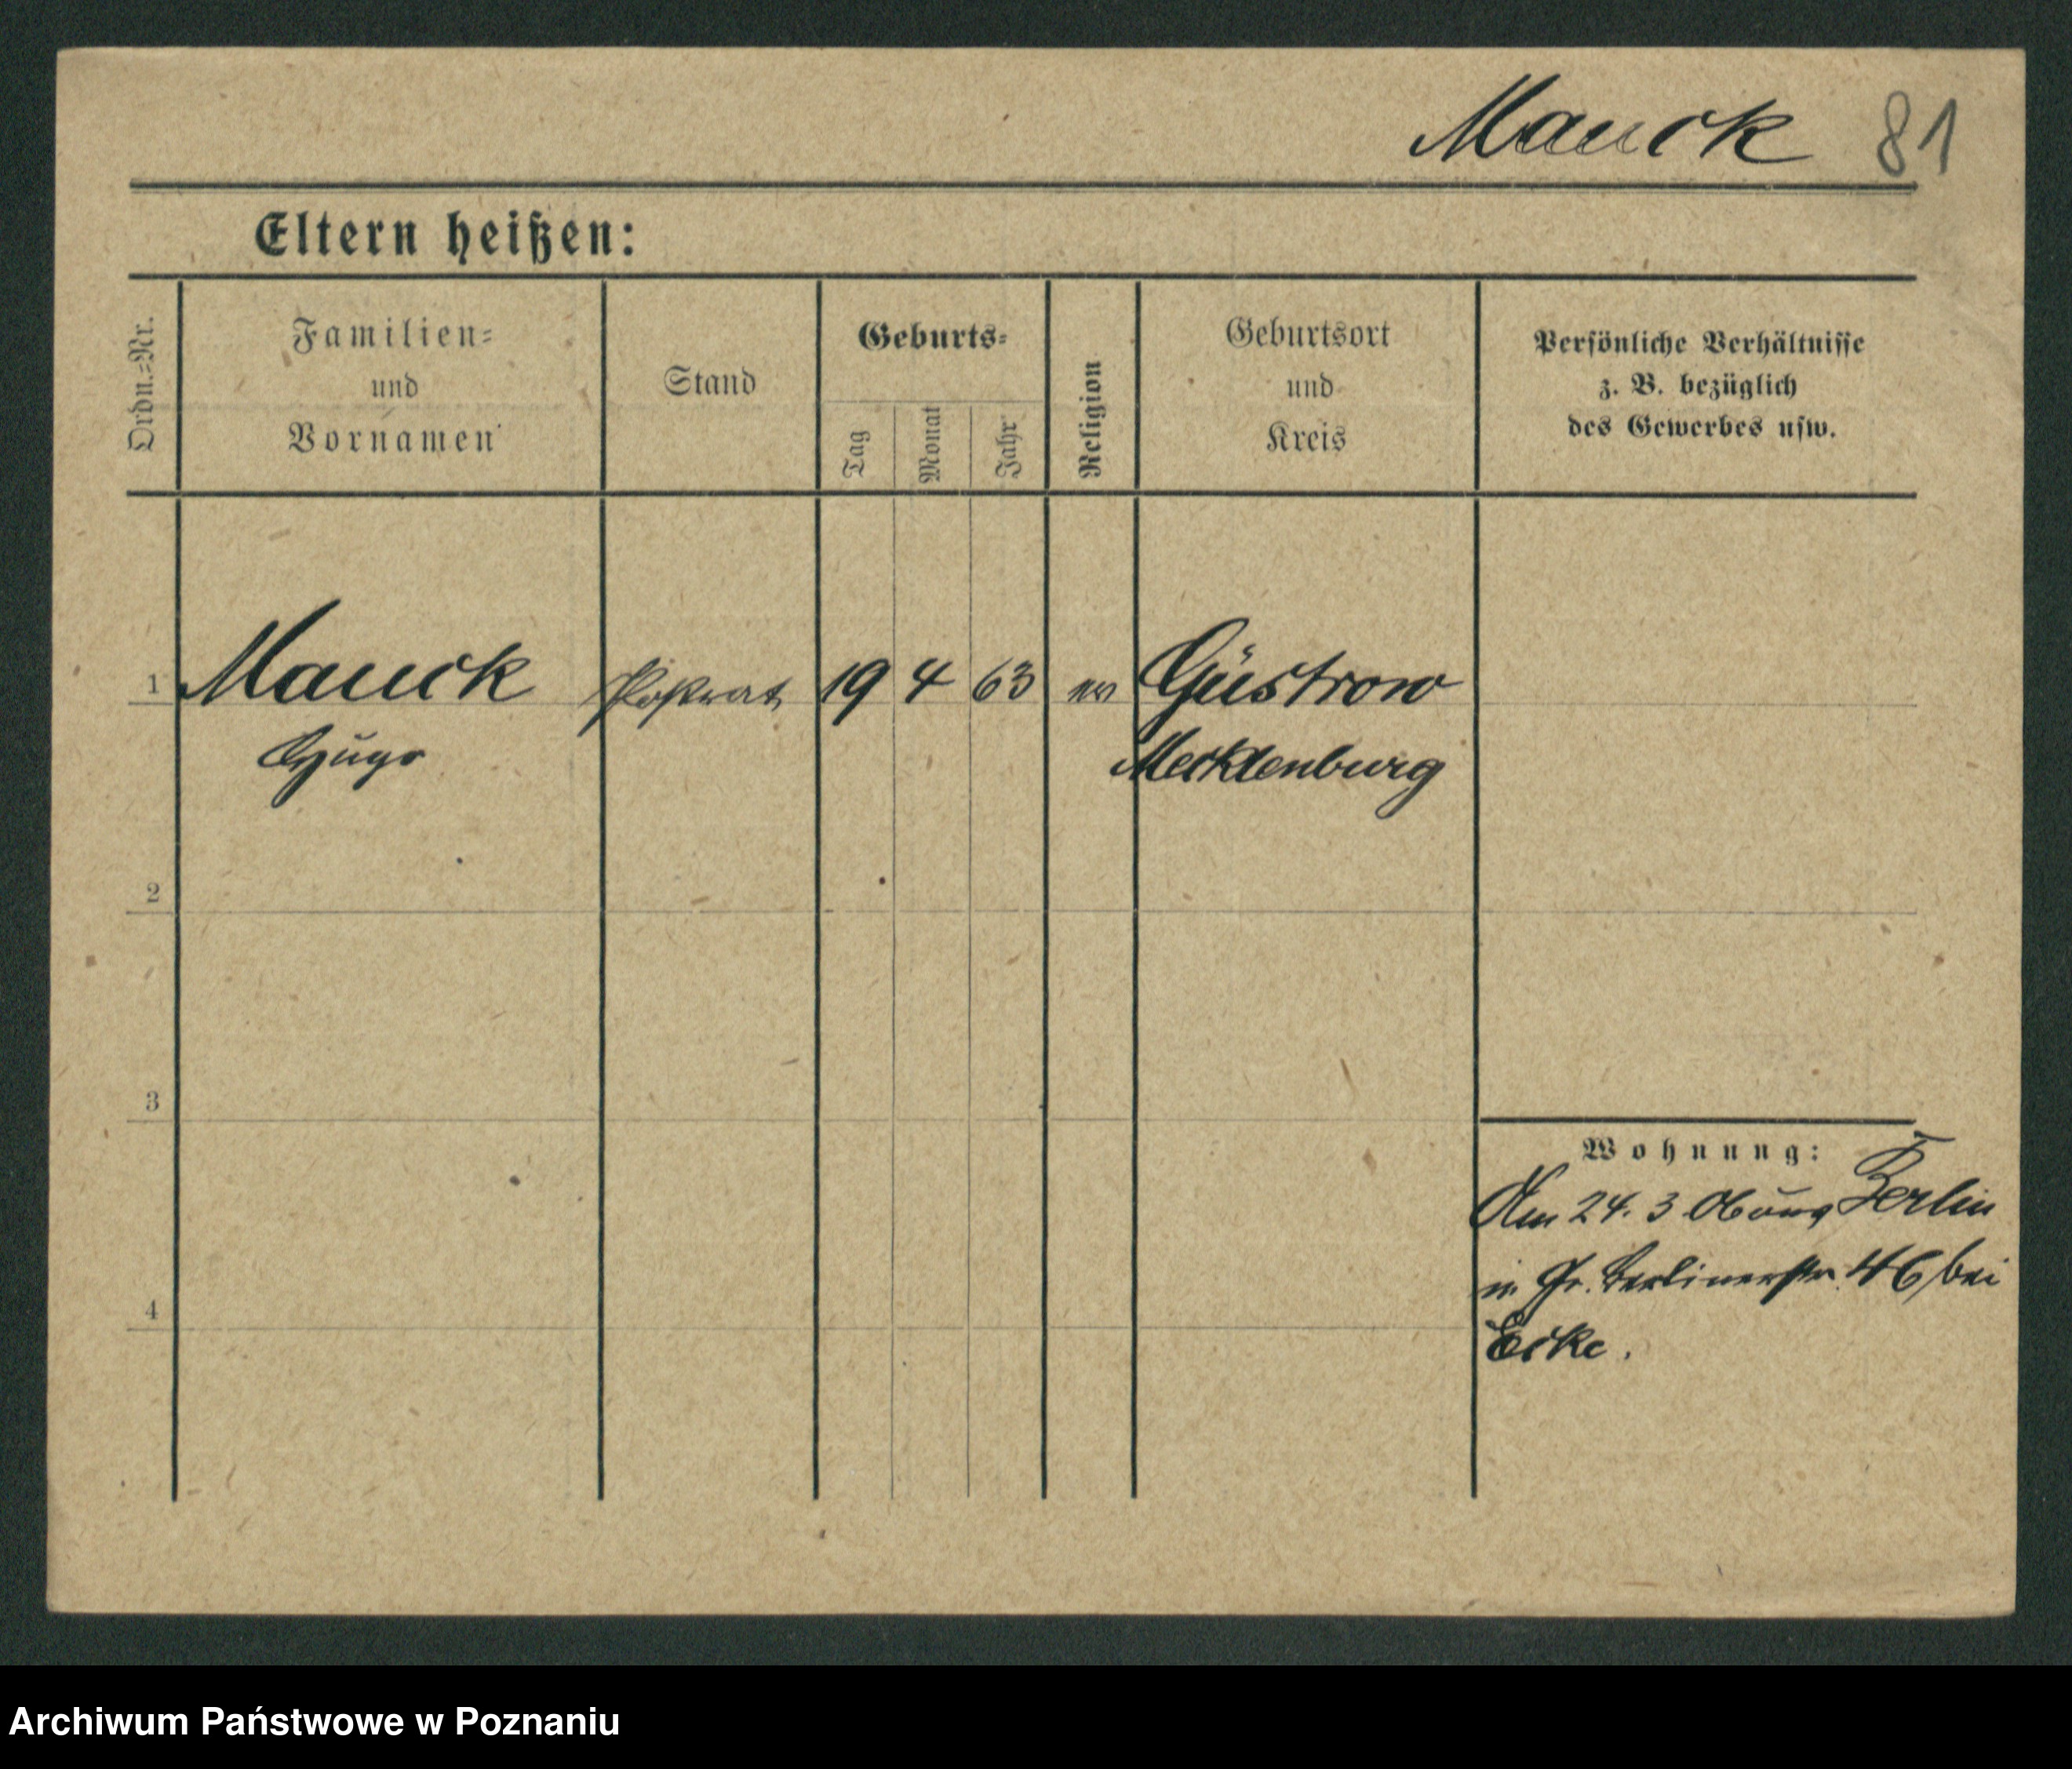 Mauck 81
Eltern heißen:
Ordn.-Nr.
Familien-
und
Vornamen
Stand
Geburts-
Tag
Monat
Jahr
Religion
Geburtsort
und
Kreis
Persönliche Verhältnisse
z. B. bezüglich
des Gewerbes usw.
1 Mauck Postrat 19 4 63 ev Güstrow
Hugo Mecklenburg
2
3
4
Wohnung:
Am 24. 3 Berlin
in Gr. Berlinerstr. 46 bei
Ecke.
Archiwum Państwowe w Poznaniu